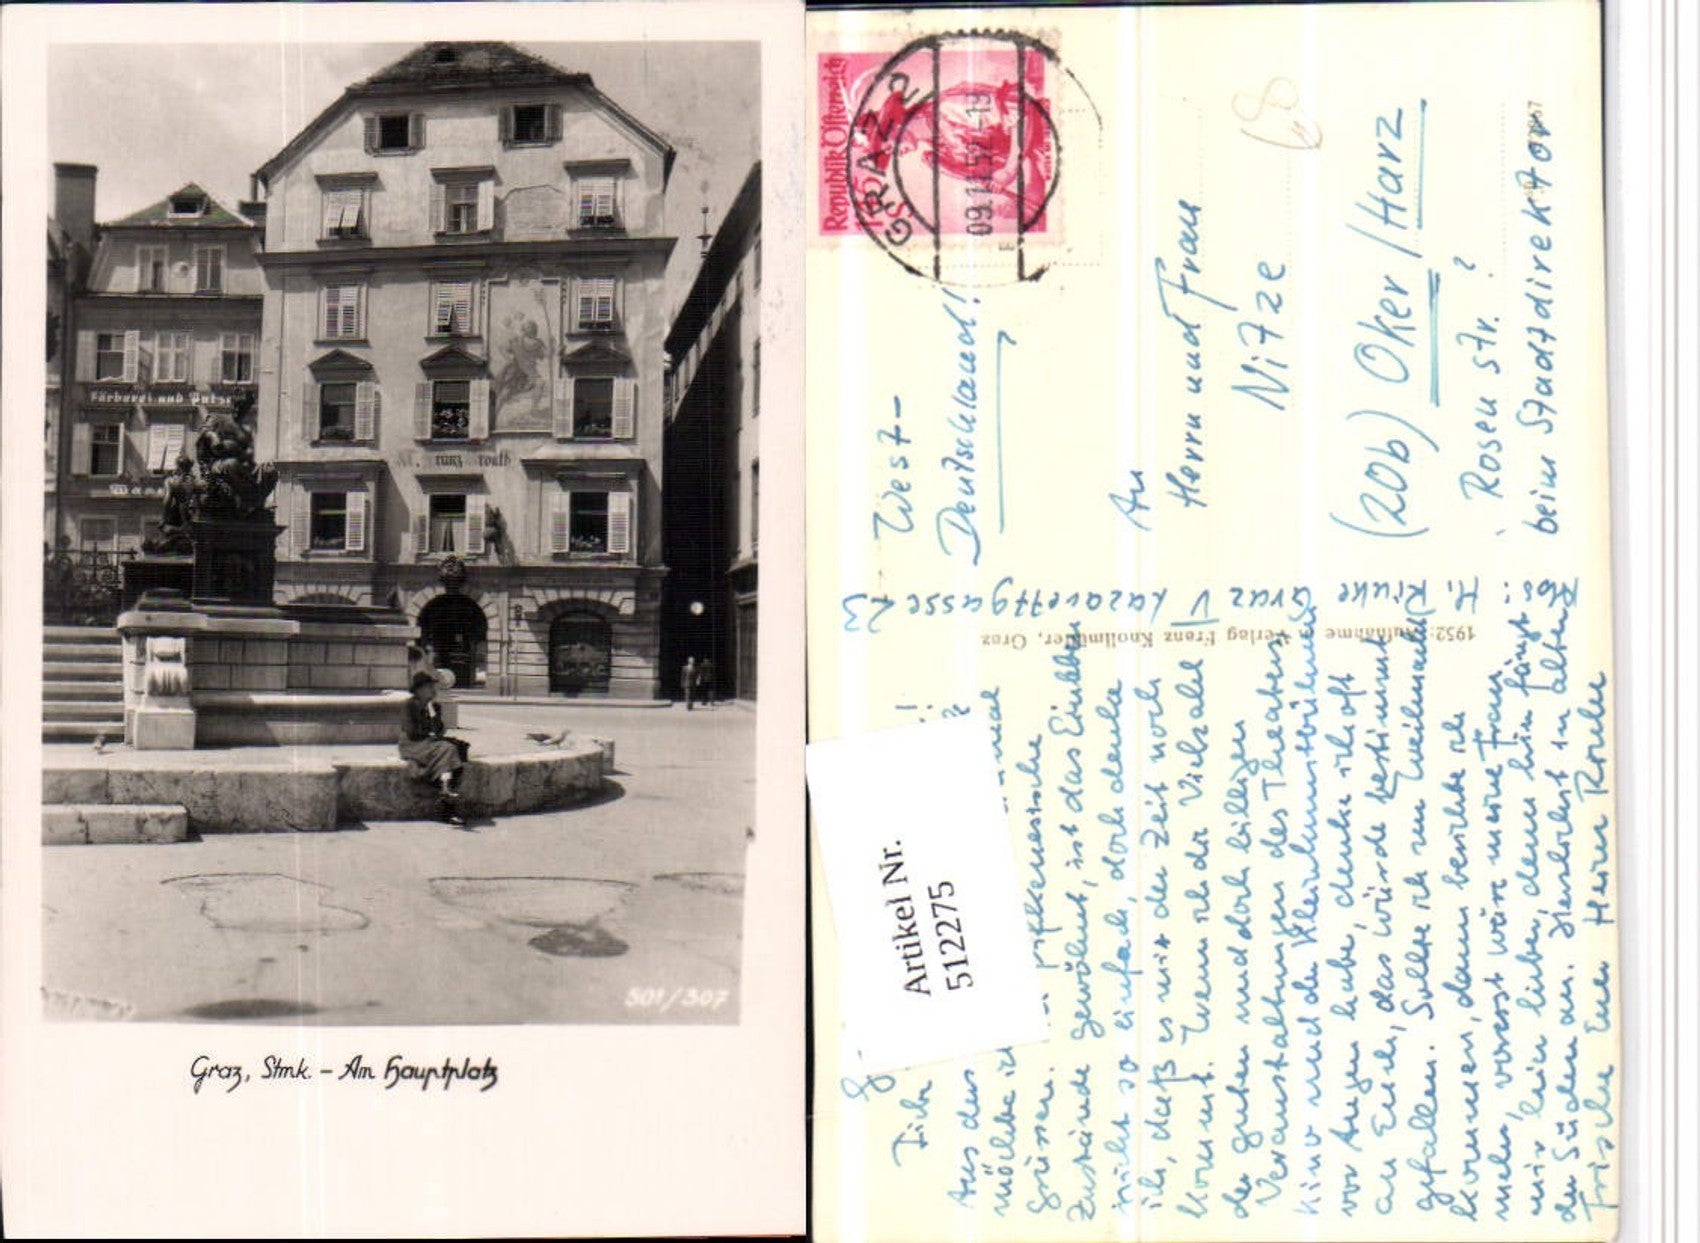 Färberei und Putze
501/307
Graz, Stmk. – Am Hauptplatz
Republik Österreich
GRAZ 2
09.11.52-19
West-
Deutschland!
An
Herrn und Frau
Nitze
(20b) Oker/Harz
Rosen str. ?
beim Stadtdirektor
68
H. Rinke
Graz V Lazarettgasse 23
1952: Aufnahme u. Verlag Franz Knollmüller, Graz
Artikel Nr.
512275
Aus dem
möchte ich
Grüssen.
Zustände gewöhnt, ist das Einleben
nicht so einfach, doch denke
ich, daß es mit der Zeit noch
kommt. Wenn ich die Vielzahl
der guten und doch billigen
Veranstaltungen des Theaters,
Kino und der Kleinkunstbühnen
vor Augen habe, denke ich oft
an Euch, das würde bestimmt
gefallen. Sollte ich zu Weihnacht
kommen, dann berichte ich
mehr, vorerst wäre meine Frau
mir hier lieber, denn hier fängt
der Süden an. Herzlichst in alter
Frische Euer Heinz Rinke